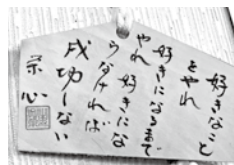 好きなこと
をやれ
好きになるまで
やれ 好きにな
らなければ
成功しない
宗心